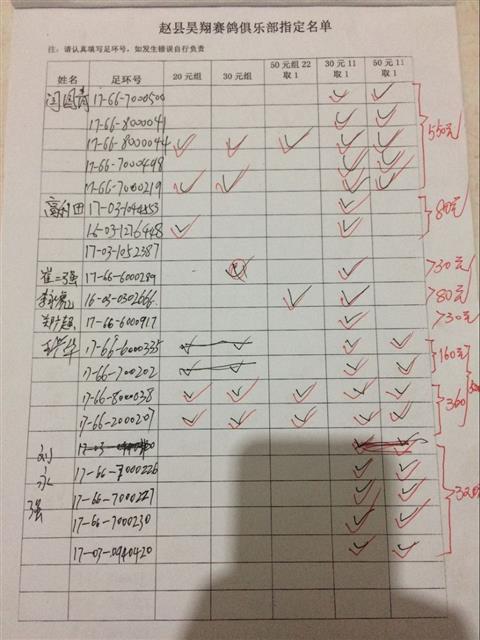 赵县昊翔赛鸽俱乐部指定名单
注：请认真填写足环号，如发生错误自行负责
姓名 足环号 20元组 30元组 50元组22取1 30元11取1 50元11取1
17-66-7000500
17-66-8000041
17-66-8000044 550元
17-66-7000498
17-66-7000219
17-03-1044853 80元
16-03-1276448
17-03-1052387
崔二强 17-66-6000289 >30元
16-03-0302666 >80元
17-66-6000917 >30元
17-66-6000335 160元
17-66-7000202
17-66-8000038 360
17-66-2000207
刘
永 17-66-7000226
强 17-66-7000227 320
17-66-7000230
17-03-0940420